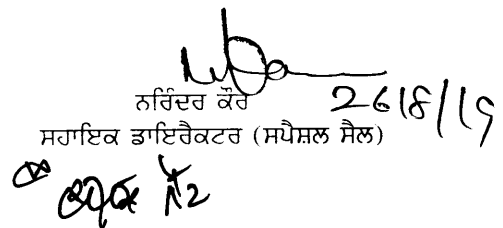 ਨਰਿੰਦਰ ਕੌਰ 26/8/19
ਸਹਾਇਕ ਡਾਇਰੈਕਟਰ (ਸਪੈਸ਼ਲ ਸੈਲ)